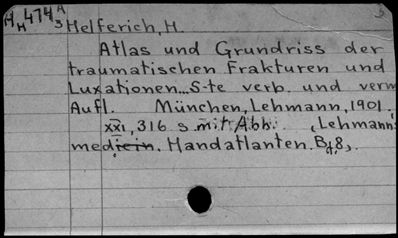 H H 474 A 3 Helferich, H.
Atlas und Grundriss der
traumatischen Frakturen und
Luxationen...5-te verb. und verm
Aufl. München, Lehmann, 1901.
XXI, 316 s. mit Abb. (Lehmann's
medicin. Handatlanten. Bd. 8).